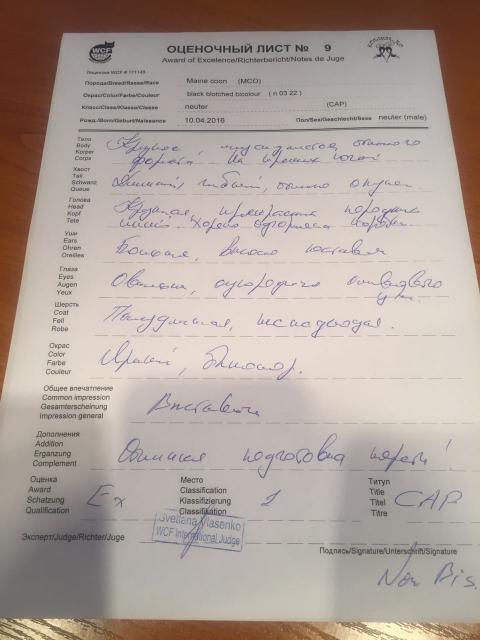 WCF
ОЦЕНОЧНЫЙ ЛИСТ № 9
Award of Excelence/Richterbericht/Notes de Juge
Лицензия WCF # 171149
Порода/Breed/Rasse/Race Maine coon (MCO)
Окрас/Color/Farbe/Couleur black blotched bicolour ( n 03 22 )
Класс/Class/Klasse/Classe neuter (CAP)
Рожд./Born/Geburt/Naissance 10.04.2016 Пол/Sex/Geschlecht/Sexe neuter (male)
Тело
Body
Korper
Corps
Крупное
формата. На крепких ногах
Хвост
Tail
Schwanz
Queue
Длинный, гибкий,
Голова
Head
Kopf
Tete
Крупная, прекрасная
Хорошо
Уши
Ears
Ohren
Oreilles
Большие, высоко поставлен
Глаза
Eyes
Augen
Yeux
Овальные,
Шерсть
Coat
Fell
Robe
Полудлинная,
Окрас
Color
Farbe
Couleur
Яркий, биколор.
Общее впечатление
Common impression
Gesamterscheinung
Impression general
Дополнения
Addition
Erganzung
Complement
Отличная подготовка
Оценка
Award
Schatzung
Qualification
Ex
Место
Classification
Klassifizierung
Classifikation
1
Титул
Title
Titel
Titre
CAP
Svetlana Vlasenko
WCF International Judge
Эксперт/Judge/Richter/Juge
Подпись/Signature/Unterschrift/Signature
Nom Bis.